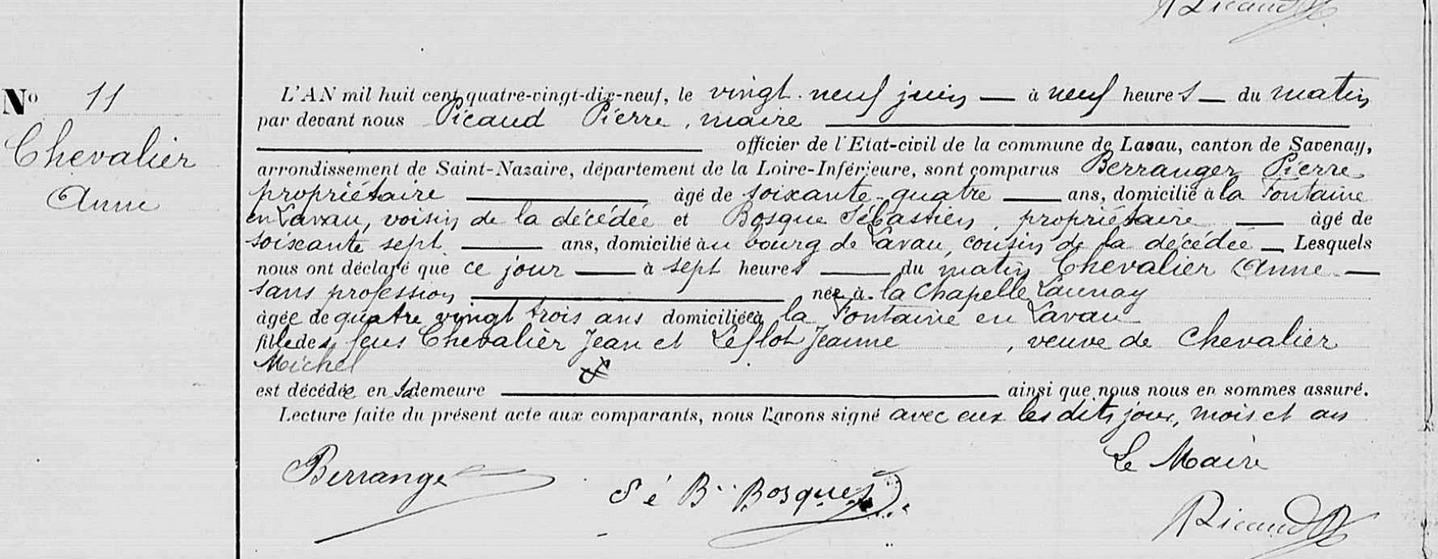 Picaud
Nº 11
Chevalier
Anne
L'AN mil huit cent quatre-vingt-dix-neuf, le vingt-neuf juin — à neuf heures — du matin
par devant nous Picaud Pierre, maire
officier de l'Etat-civil de la commune de Lavau, canton de Savenay,
arrondissement de Saint-Nazaire, département de la Loire-Inférieure, sont comparus Berranger Pierre
propriétaire — âgé de soixante-quatre — ans, domicilié à la Fontaine
en Lavau, voisin de la décédée et Bosque Sébastien, propriétaire — âgé de
soixante sept — ans, domicilié au bourg de Lavau, cousin de la décédée — Lesquels
nous ont déclaré que ce jour — à sept heures — du matin Chevalier Anne —
sans profession — née à la Chapelle Launay
âgée de quatre vingt trois ans domiciliée à la Fontaine en Lavau
fille des feus Chevalier Jean et Leflot Jeanne, veuve de Chevalier
Michel
est décédée en sa demeure — ainsi que nous nous en sommes assuré.
Lecture faite du présent acte aux comparants, nous l'avons signé avec eux les dits jour, mois et an
Le Maire
Berranger
Sé B Bosque
Picaud